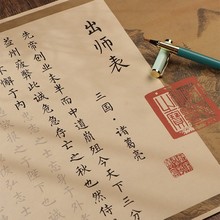 出师表
三国·诸葛亮
先帝创业未半而中道崩殂今天下三分
益州疲弊此诚危急存亡之秋也然侍
不懈于内